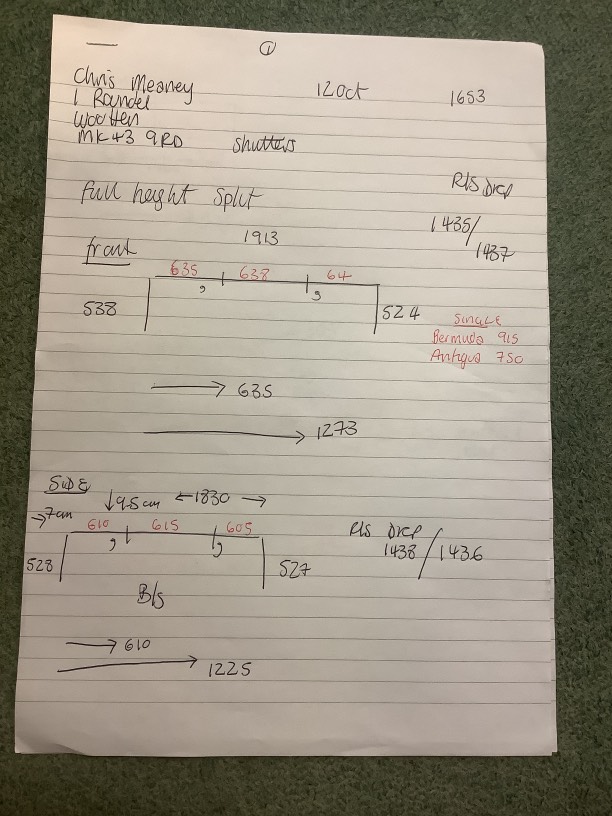 ①
Chris Meaney
12 Oct 1653
1 Roundel
Wootten
MK43 9RD shutters
Full height Split
R/S DRP
1435/
1437
front 1913
635 638 64
538 524
SINGLE
Bermuda 915
Antigua 750
635
1273
SIDE
9.5 cm 1830
7cm
610 615 605
R/S DRP
1438/1436
528 527
B/S
610
1225